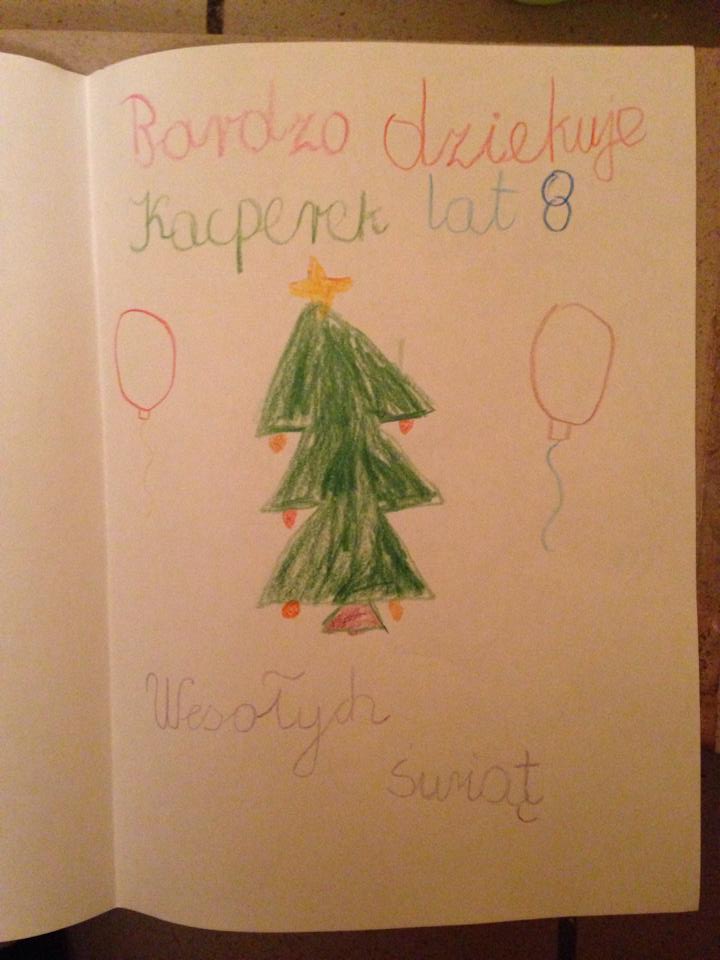 Bardzo dziękuje
Kacperek lat 8
Wesołych
świąt